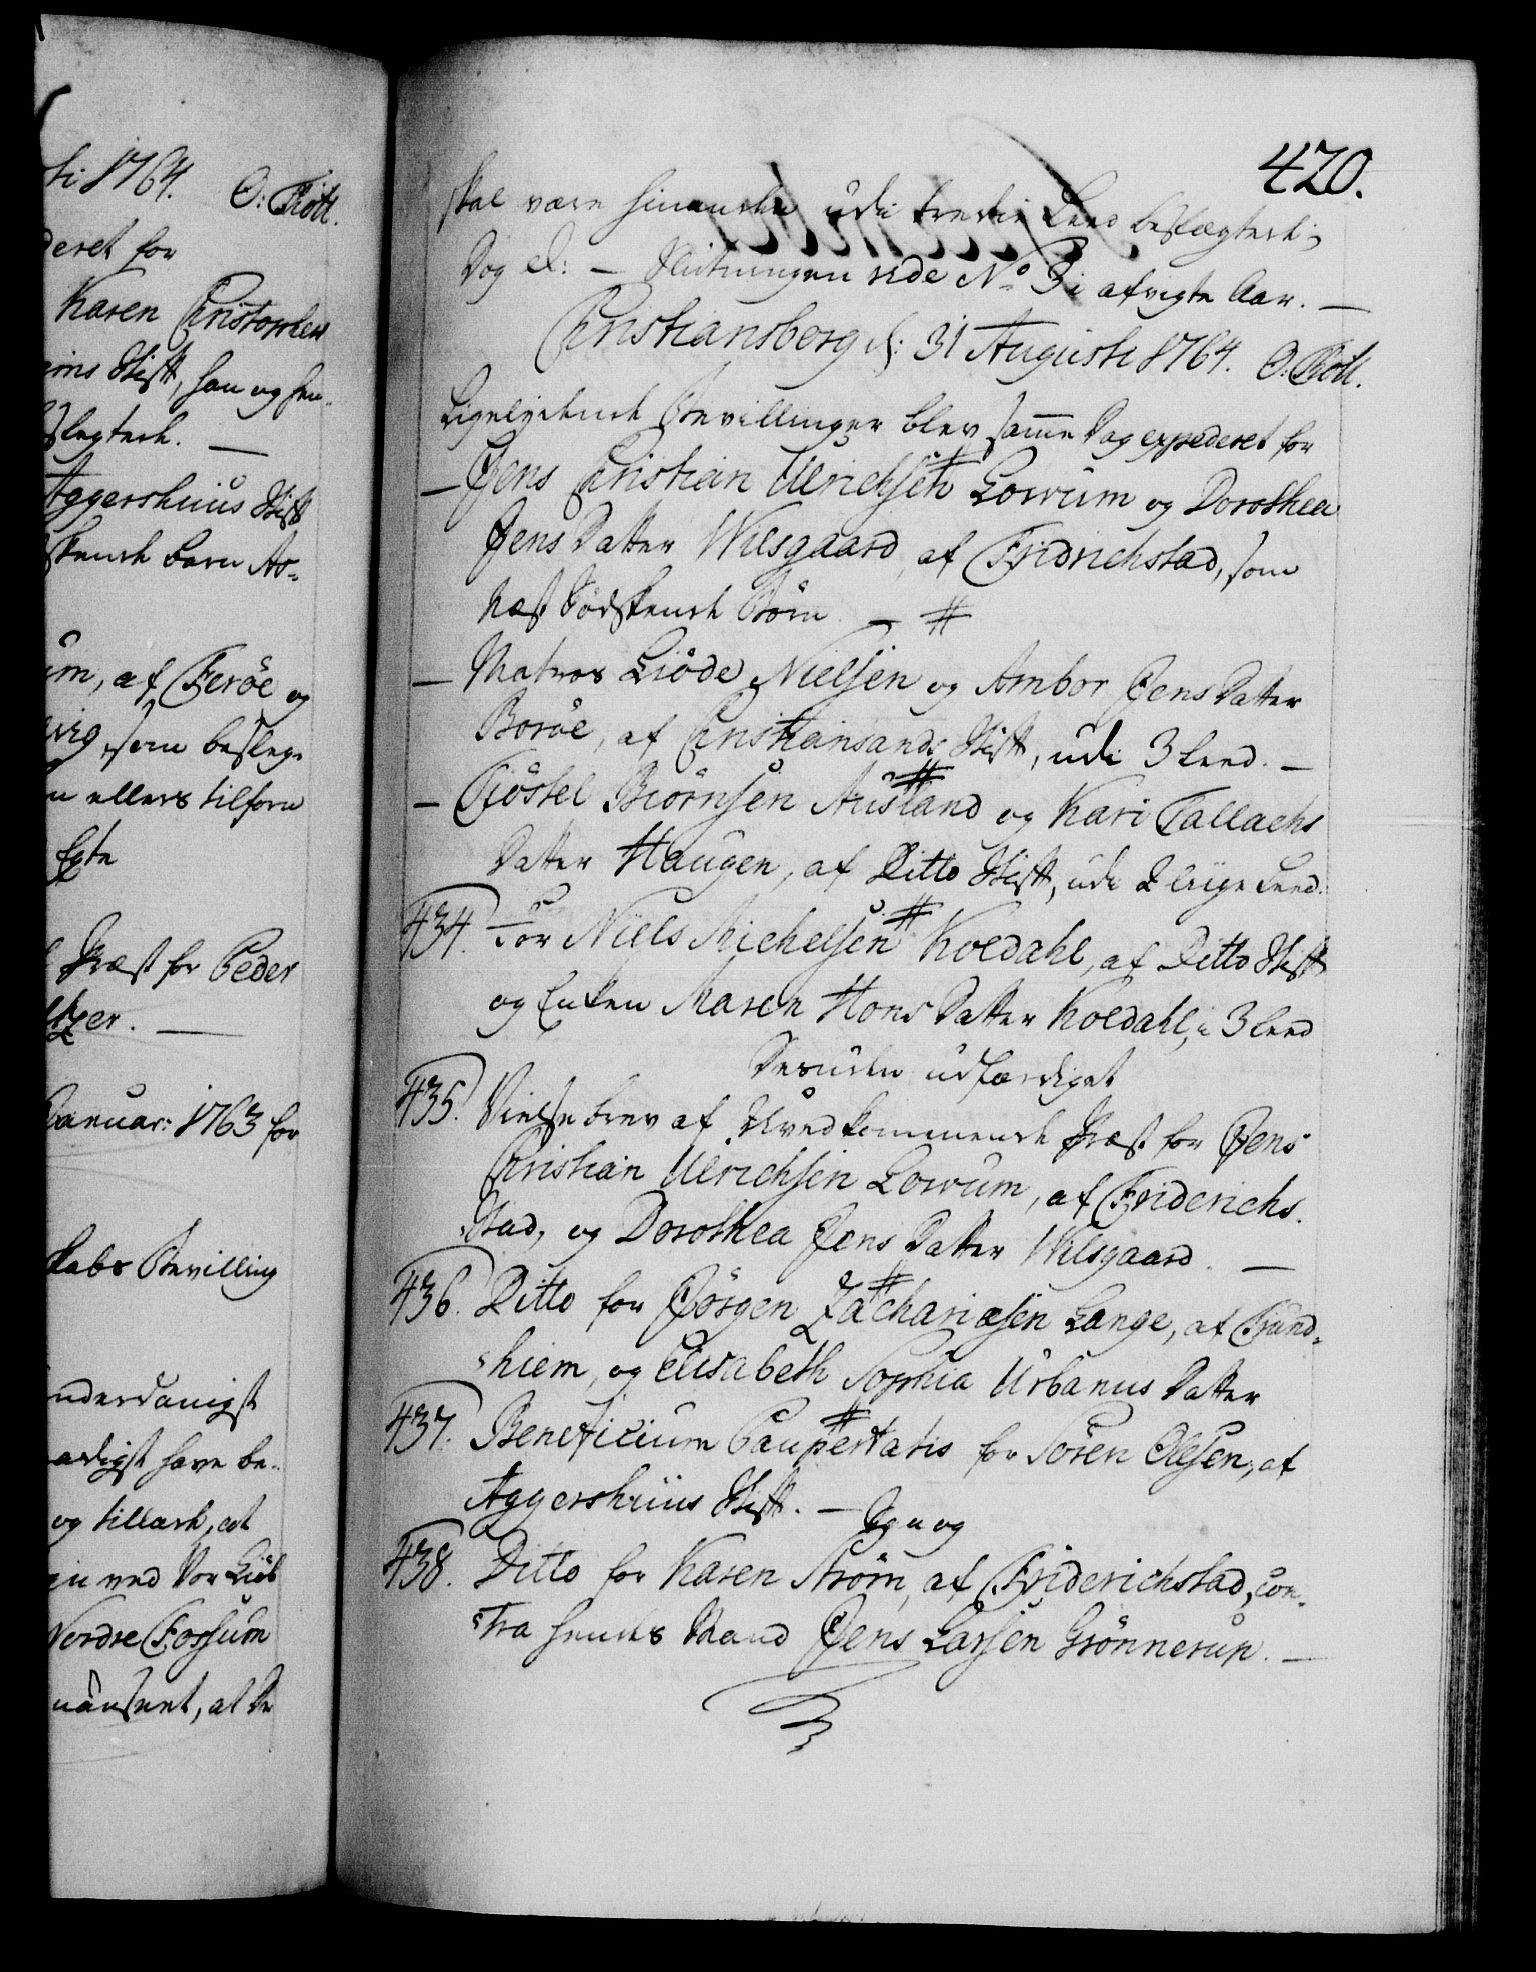 ti 1764. O: Thott.
deret for
Karen Christophers
iins Stift, han og hun
slegtede.
Aggershuus Stift
skende barn Ar-
um, af Ferøe og
vig, som besleg-
n ellers tilforn
Egte
Præst for Peder
tzer.
Januar: 1763 for
kabs Bevilling
nderdanigst
adigst have be-
og tilladt, at
Nordre Fossum
420.
skal være hinanden udi tredie Leed beslægtede;
Dog etc: — Slutningen vide No 3 i afvigte Aar. —
Christiansborg d: 31 Augusti 1764. O. Thott.
Ligelydende Bevillinger blev samme Dag expederet for
— Jens Christian Ulrichsen Lowum og Dorothea
Jens Datter Wilsgaard, af Fridrichstad, som
Næst Sødskende Børn. — #
— Matros Liøde Nielsen og Ambor Jens Datter
Borøe, af Christiansands Stift, udi 3 Leed. —
— Tiøstel Biørnsen Ausland og Kari Tallachs
Datter Haugen, af Ditto Stift, udi 2 liige Leed.
434. For Niels Michelsen Koldahl, af Ditto Stift
og Enken Maren Hons Datter Koldahl, i 3 Leed
Desuden udfærdiget
435. Vielse brev af Uvedkommende Præst for Jens
Christian Ulrichsen Lowum, af Friderich-
stad, og Dorothea Jens Datter Wilsgaard. —
436. Ditto for Jørgen Zachariæsen Lange, af Trund-
hiem, og Elisabeth Sophia Urbanus Datter
437. Beneficium Paupertatis for Søren Olesen, af
Aggershuus Stift. — Ogsaa
438. Ditto for Karen Strøm, af Friderichstad, con-
tra hendes Mand Jens Larsen Grønnerup. —